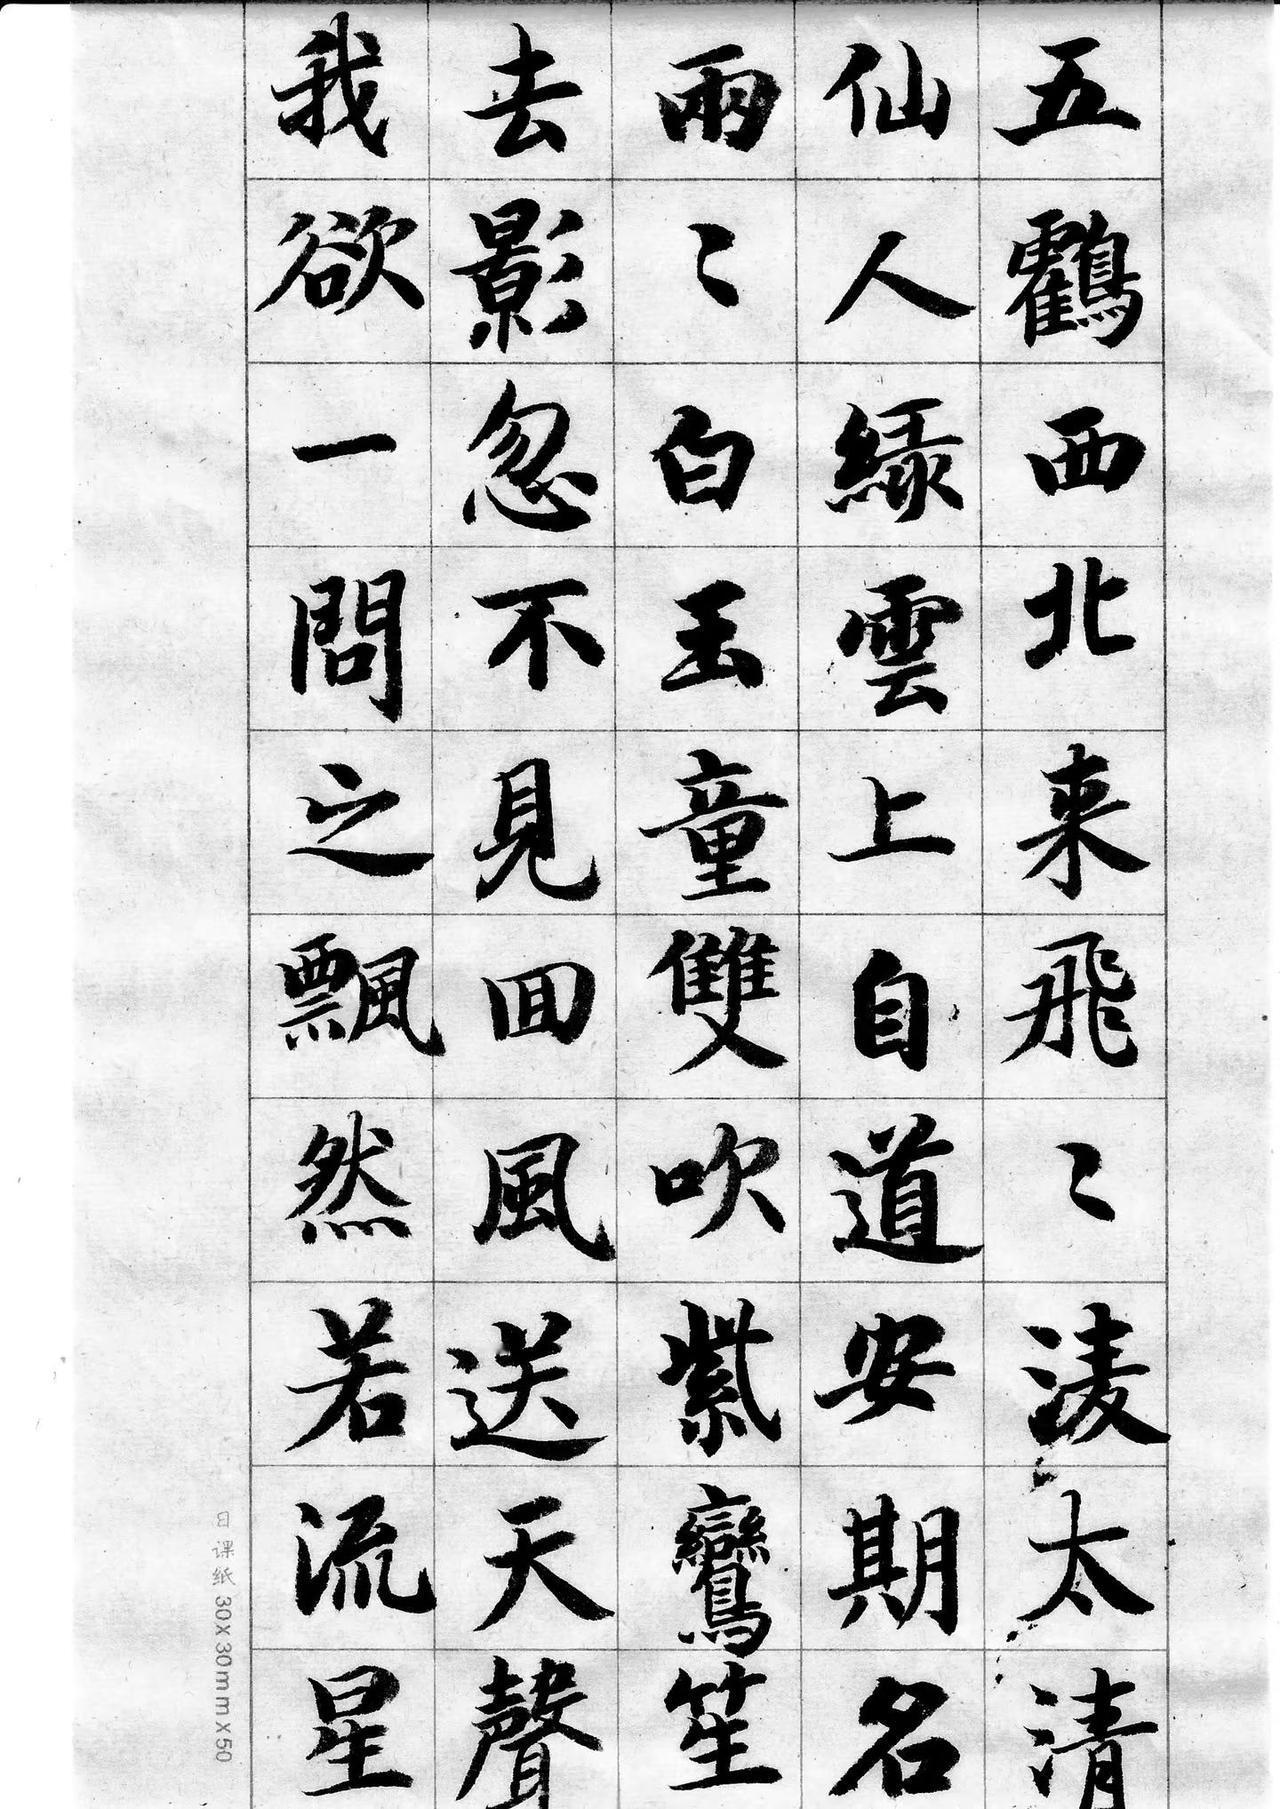 五鸖西北来飛〻淩太清
仙人緑雲上自道安期名
兩〻白玉童雙吹紫鸞笙
去影忽不見回風送天聲
我欲一問之飄然若流星
日课纸 30x30mmx50